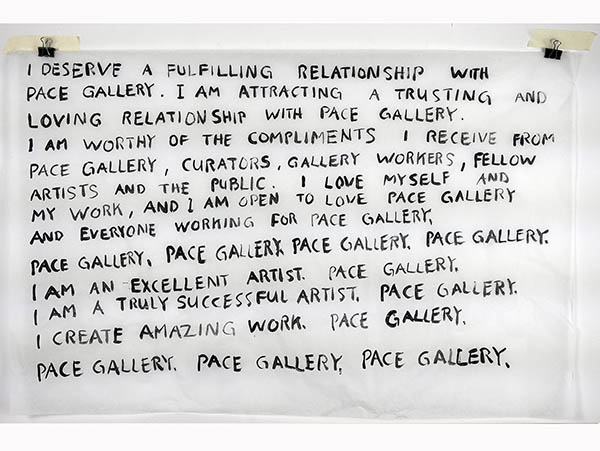 I DESERVE A FULFILLING RELATIONSHIP WITH
PACE GALLERY. I AM ATTRACTING A TRUSTING AND
LOVING RELATIONSHIP WITH PACE GALLERY.
I AM WORTHY OF THE COMPLIMENTS I RECEIVE FROM
PACE GALLERY, CURATORS, GALLERY WORKERS, FELLOW
ARTISTS AND THE PUBLIC. I LOVE MYSELF AND
MY WORK, AND I AM OPEN TO LOVE PACE GALLERY
AND EVERYONE WORKING FOR PACE GALLERY.
PACE GALLERY. PACE GALLERY. PACE GALLERY. PACE GALLERY.
I AM AN EXCELLENT ARTIST. PACE GALLERY.
I AM A TRULY SUCCESSFUL ARTIST. PACE GALLERY.
I CREATE AMAZING WORK. PACE GALLERY.
PACE GALLERY. PACE GALLERY. PACE GALLERY.